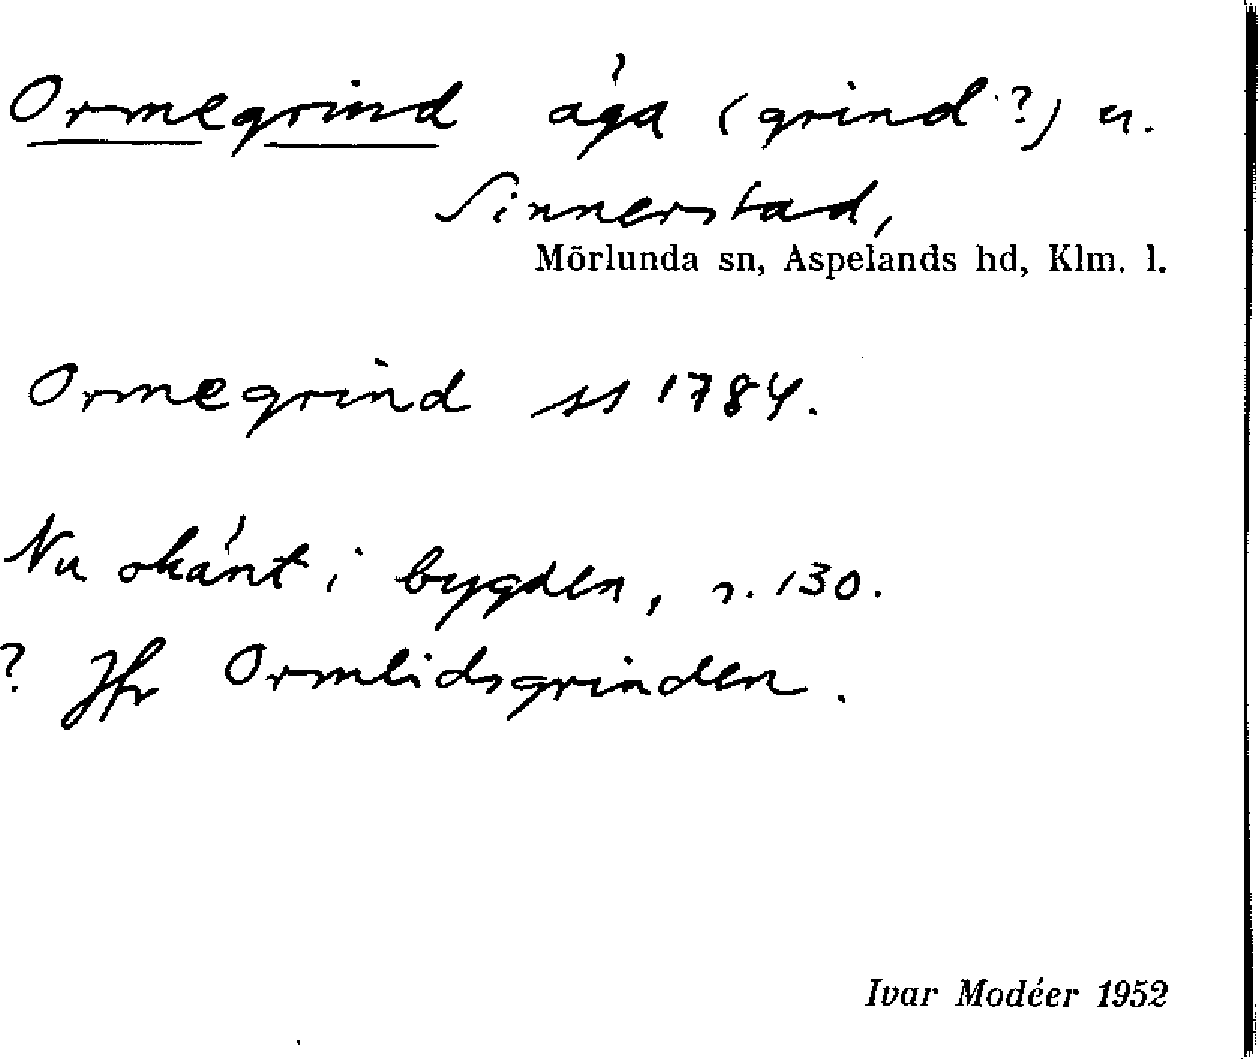 Ormegrind äga (grind?) u.
Sinnerstad,
Mörlunda sn, Aspelands hd, Klm. l.
Ormegrind ss 1784.
Nu okänt i bygden, s. 130.
? Jfr Ormlidsgrinden.
Ivar Modéer 1952